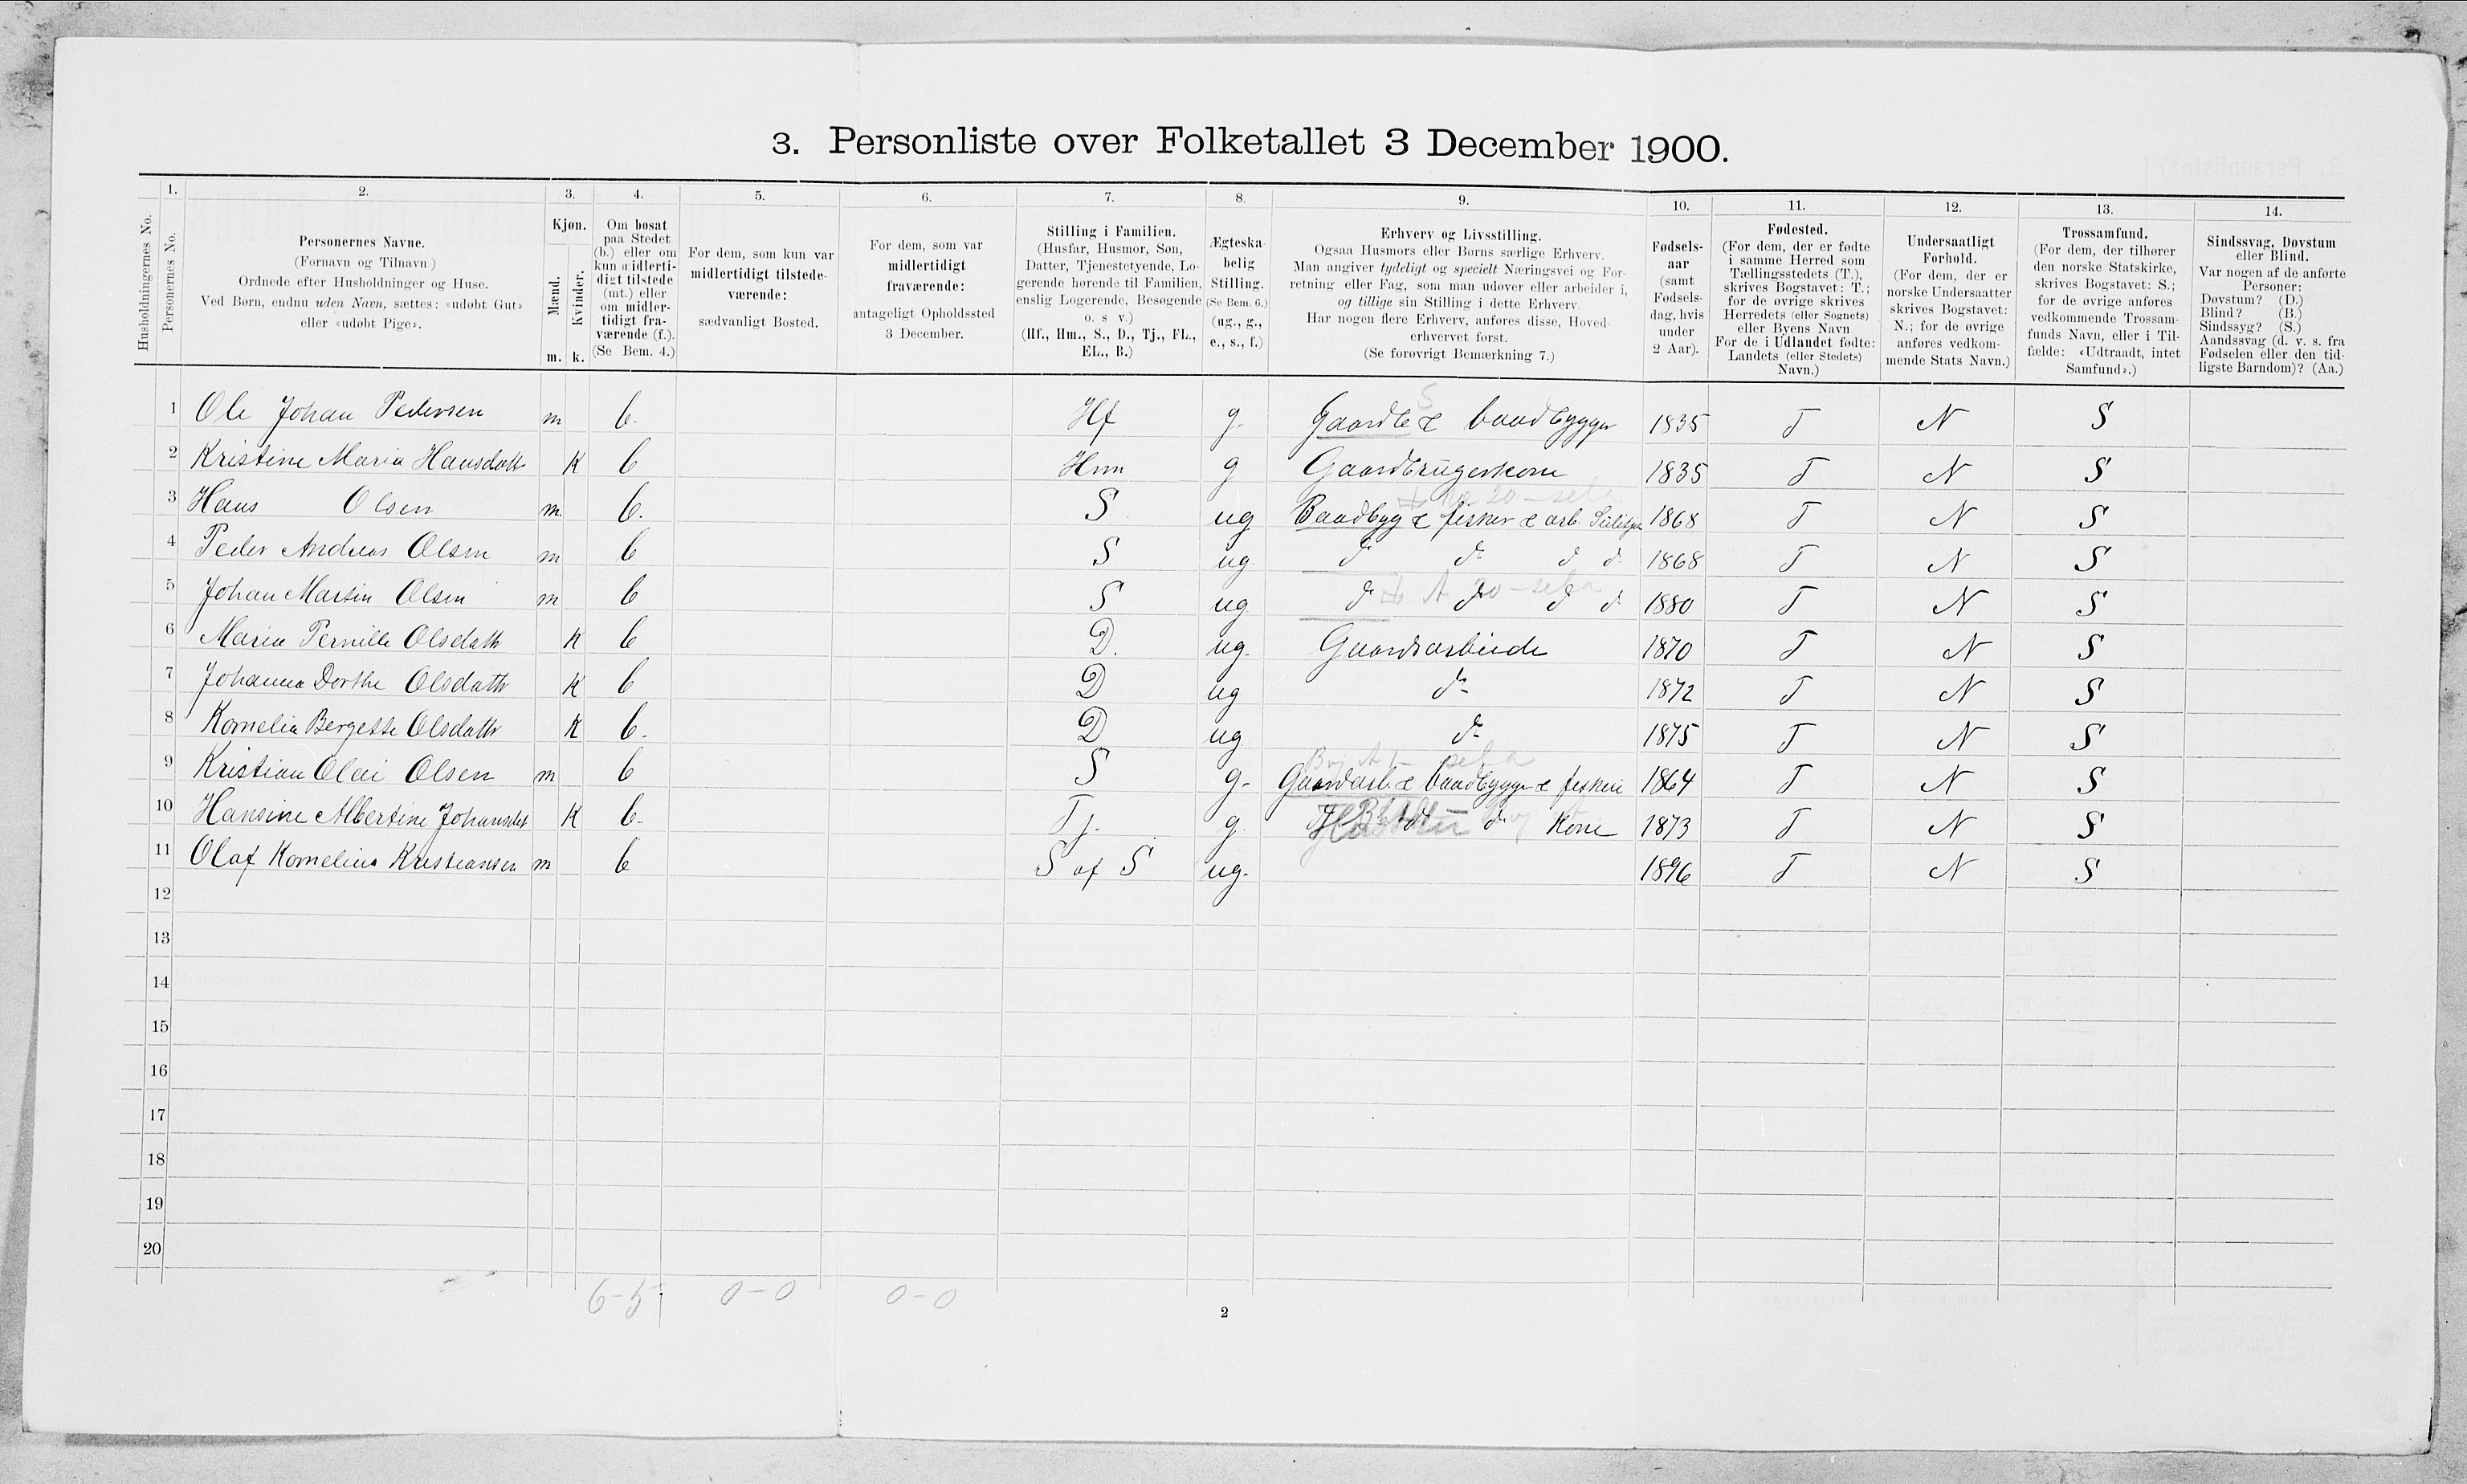 3. Personliste over Folketallet 3 December 1900.
1. 2. 3. 4. 5. 6. 7. 8. 9. 10. 11. 12. 13. 14.
Husholdningernes No.
Personernes No.
Personernes Navne.
(Fornavn og Tilnavn)
Ordnede efter Husholdninger og Huse.
Ved Børn, endnu uden Navn, sættes: «udøbt Gut»
eller «udøbt Pige».
Kjøn.
Mænd.
Kvinder.
m. k.
Om bosat
paa Stedet
(b.) eller om
kun midlerti-
digt tilstede
(mt.) eller
om midler-
tidigt fra-
værende (f.).
(Se Bem. 4.)
For dem, som kun var
midlertidigt tilstede-
værende:
sædvanligt Bosted.
For dem, som var
midlertidigt
fraværende:
antageligt Opholdssted
3 December.
Stilling i Familien.
(Husfar, Husmor, Søn,
Datter, Tjenestetyende, Lo-
gerende hørende til Familien,
enslig Logerende, Besøgende
o. s. v.)
(Hf., Hm., S., D., Tj., FL.,
EL., B.)
Ægteska-
belig
Stilling.
(Se Bem. 6.)
(ug., g.,
e., s., f.)
Erhverv og Livsstilling.
Ogsaa Husmors eller Børns særlige Erhverv.
Man angiver tydeligt og specielt Næringsvei og For-
retning eller Fag, som man udøver eller arbeider i,
og tillige sin Stilling i dette Erhverv.
Har nogen flere Erhverv, anføres disse, Hoved-
erhvervet først.
(Se forøvrigt Bemærkning 7.)
Fødsels-
aar
(samt
Fødsels-
dag, hvis
under
2 Aar).
Fødested.
(For dem, der er fødte
i samme Herred som
Tællingsstedets (T.),
skrives Bogstavet: T.;
for de øvrige skrives
Herredets (eller Sognets)
eller Byens Navn
For de i Udlandet fødte:
Landets (eller Stedets)
Navn.)
Undersaatligt
Forhold.
(For dem, der er
norske Undersaatter
skrives Bogstavet:
N.; for de øvrige
anføres vedkom-
mende Stats Navn.)
Trossamfund.
(For dem, der tilhører
den norske Statskirke,
skrives Bogstavet: S.;
for de øvrige anføres
vedkommende Trossam-
funds Navn, eller i Til-
fælde: «Udtraadt, intet
Samfund».)
Sindssvag, Døvstum
eller Blind.
Var nogen af de anførte
Personer:
Døvstum? (D.)
Blind? (B.)
Sindssyg? (S.)
Aandssvag (d. v. s. fra
Fødselen eller den tid-
ligste Barndom)? (Aa.)
1 Ole Johan Pedersen m b. Hf g. Gaardb & baadbygger 1835 T N S
2 Kristine Maria Hansdatt K b Hm g Gaardbrugerkone 1835 T N S
3 Hans Olsen m. b. S ug Baadbyg & fisker & arb. 1868 T N S
4 Peder Andreas Olsen m b S ug do do d d 1868 T N S
5 Johan Martin Olsen m b S ug. d d d d 1880 T N S
6 Maria Pernille Olsdatt K b D. ug. Gaardsarbeide 1870 T N S
7 Johanna Dorthe Olsdatt K b D ug do 1872 T N S
8 Kornelia Bergette Olsdatt K b. D ug do 1875 T N S
9 Kristian Olai Olsen m b S g. Gaardarb & baadbygger & fiskeri 1864 T N S
10 Hansine Albertine Johansdat K b. Tj. g. do Kone 1873 T N S
11 Olaf Kornelius Kristiansen m b S af S ug. 1896 T N S
12
13
14
15
16
17
18
19
20
6-5 0-0 0-0
2